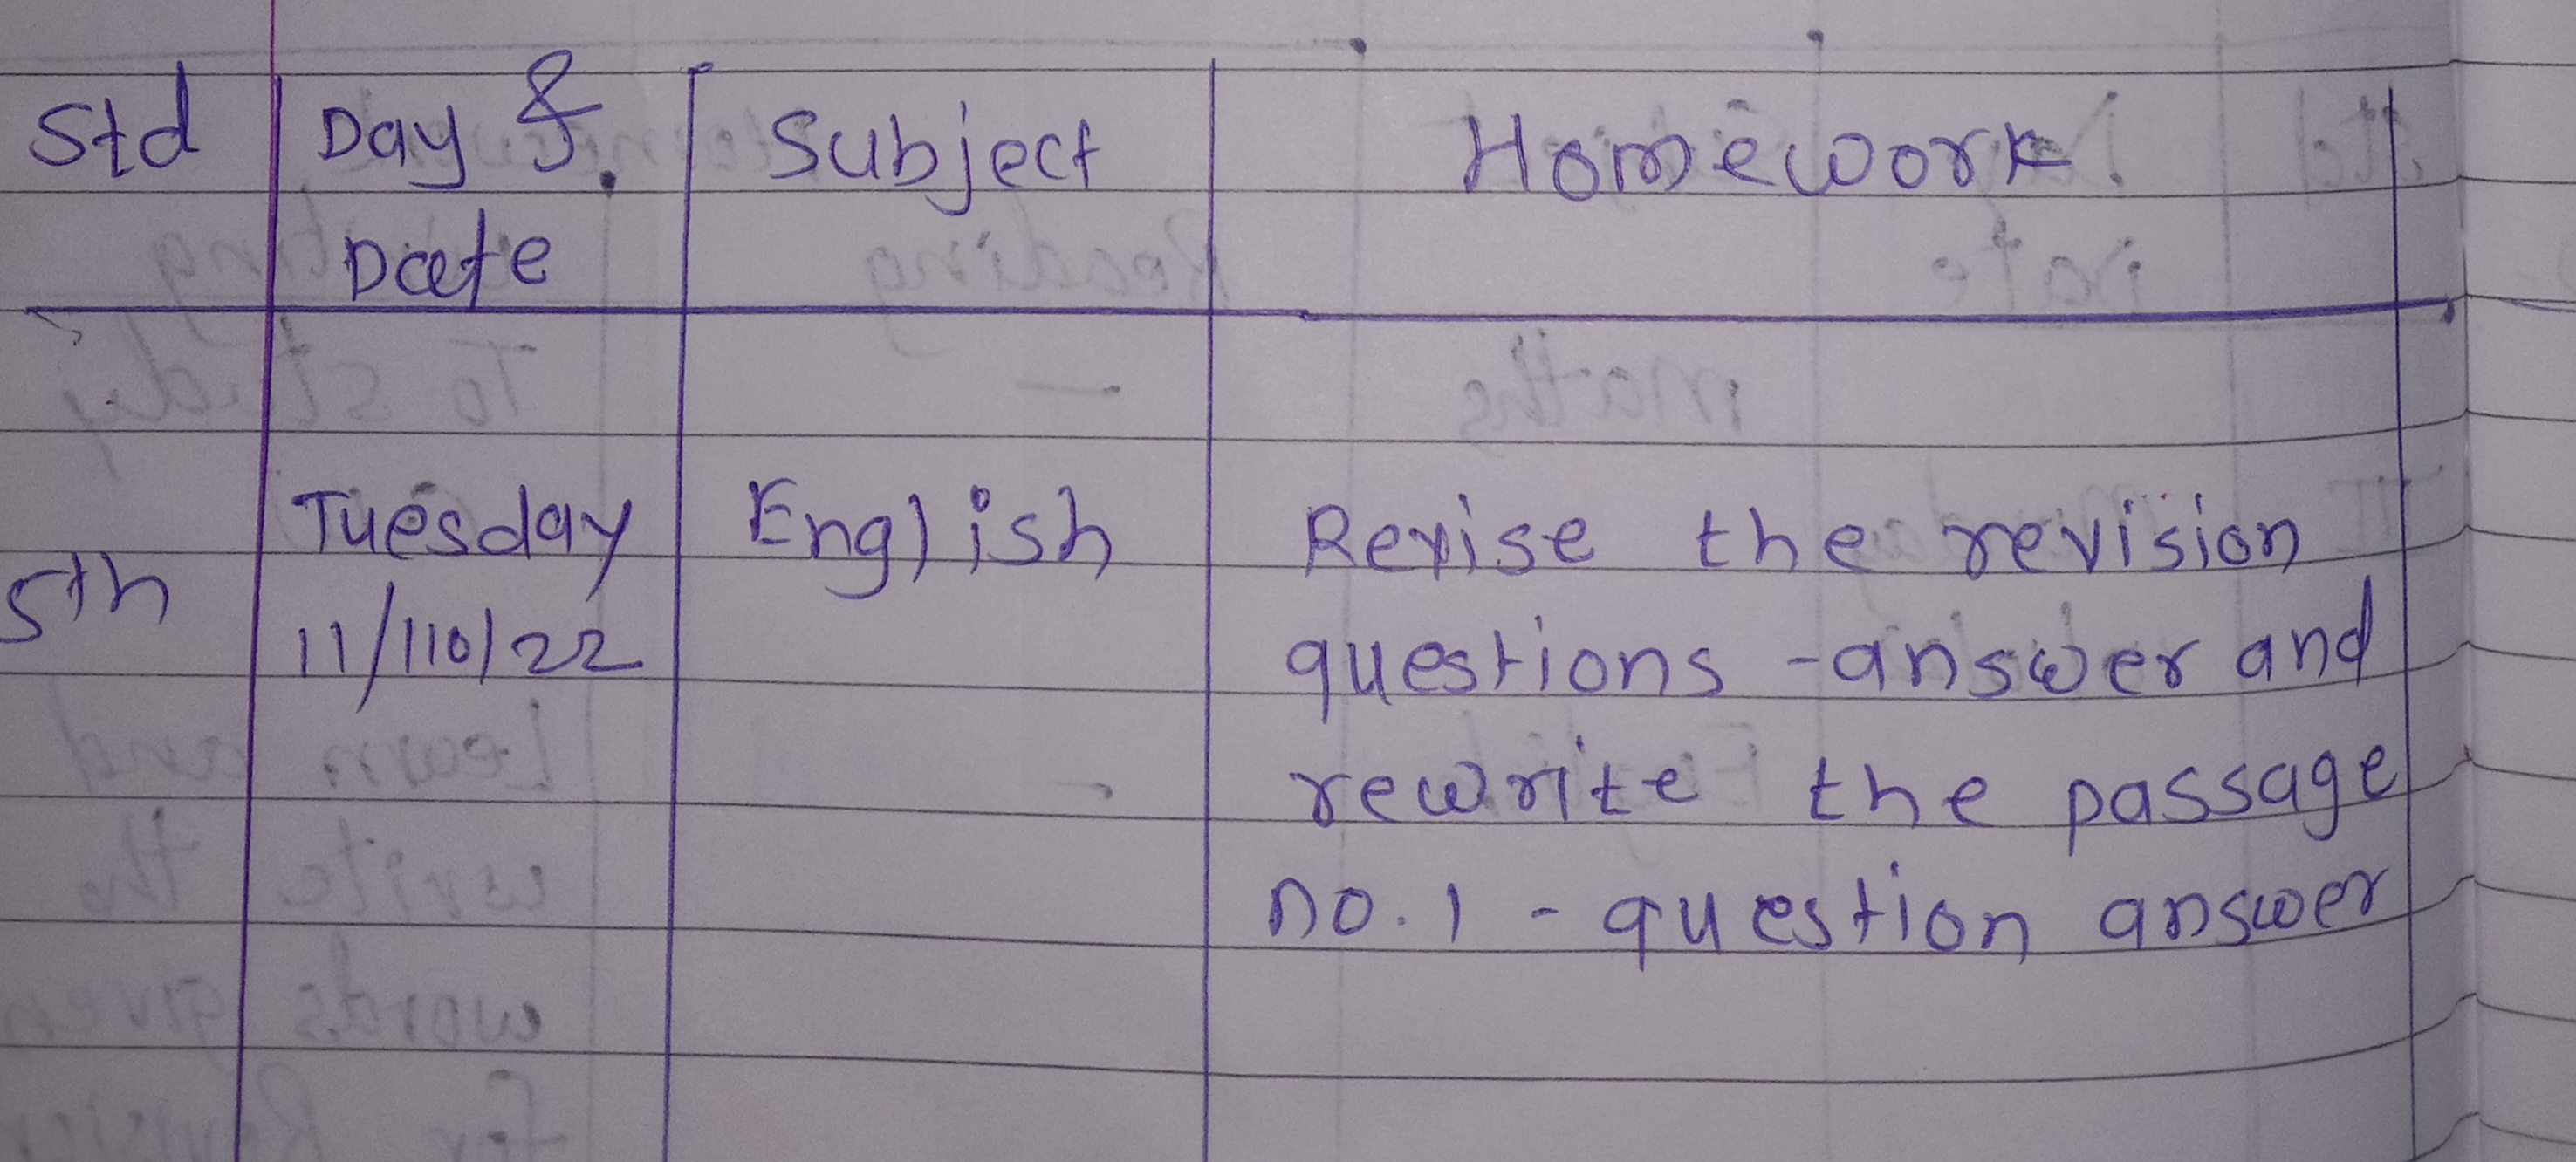 Std Day & Subject Homework
Date
Tuesday English Revise the revision
5th
11/110/22 questions - answer and
rewrite the passage
no. 1 - question answer